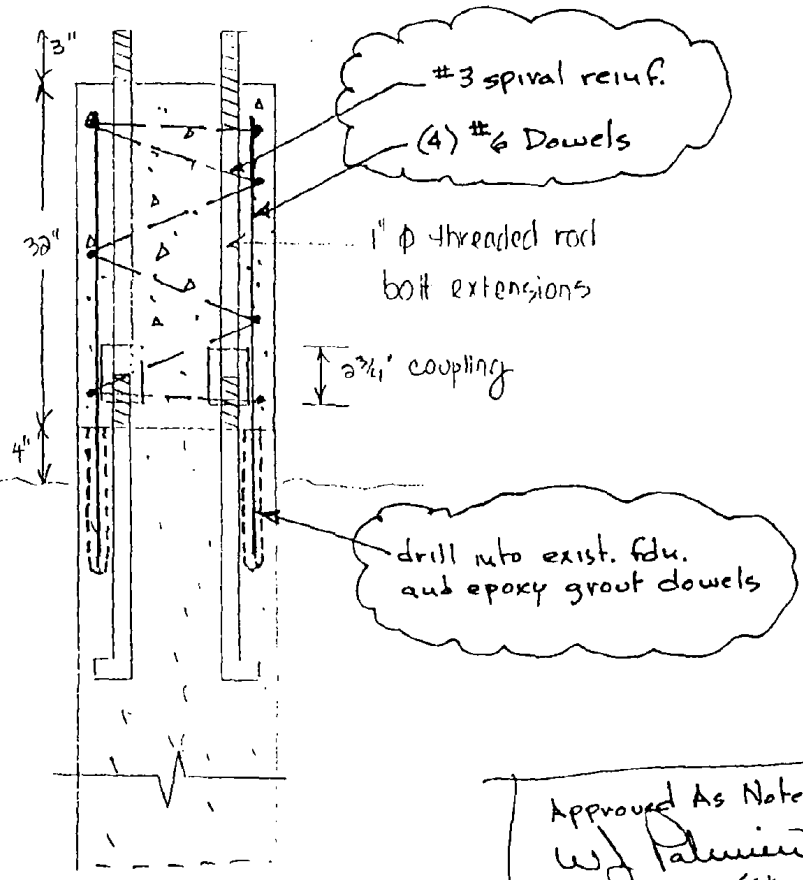 3"
#3 spiral reinf.
(4) #6 Dowels
32"
1" φ threaded rod
bolt extensions
2 3/4" coupling
4"
drill into exist. fdn.
and epoxy grout dowels
Approved As Note
WJ Palmieri